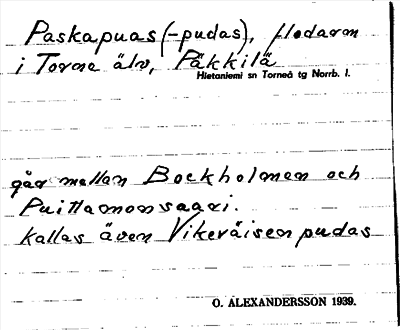 Paskapuas (-pudas), flodarm
i Torne älv, Päkkilä
Hietaniemi sn Torneå tg Norrb. l.
går mellan Bockholmen och
Puittamonsaari.
Kallas även Vikeräisenpudas
O. ALEXANDERSSON 1939.